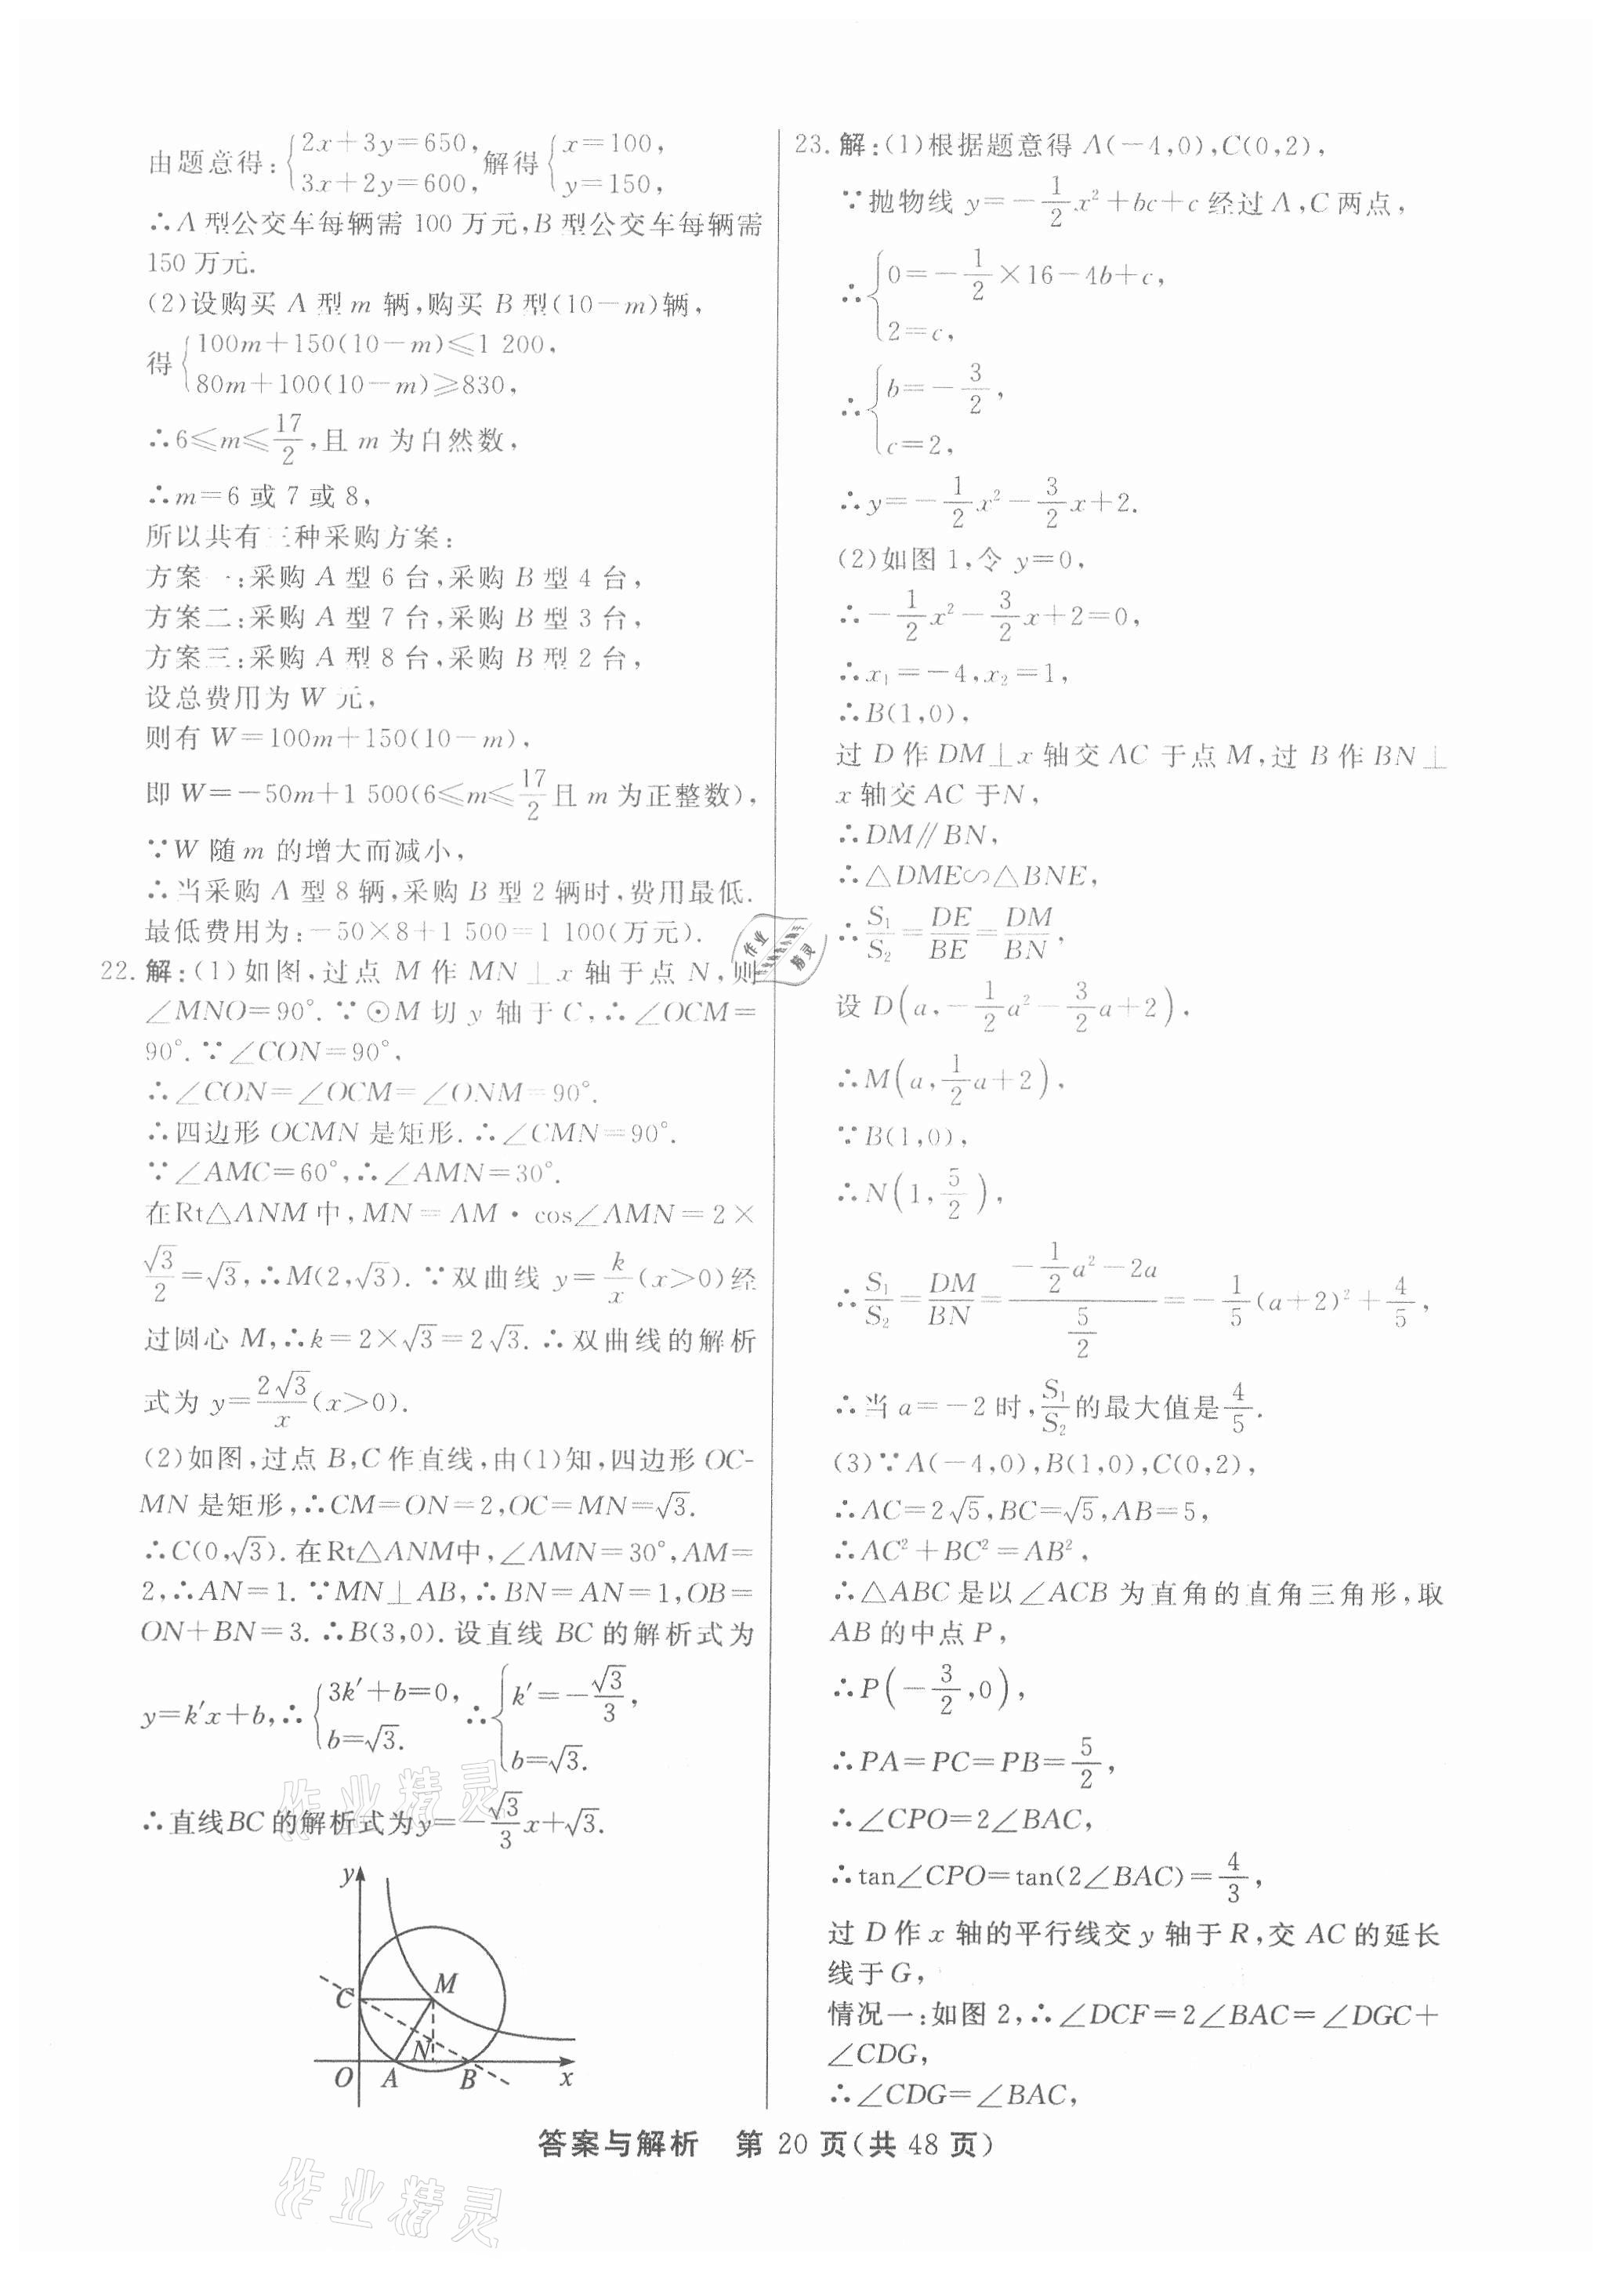 由题意得:{2x+3y=650, 3x+2y=600, 解得{x=100, y=150,
∴A 型公交车每辆需 100 万元,B 型公交车每辆需
150 万元.
(2)设购买 A 型 m 辆,购买 B 型(10-m)辆,
得{100m+150(10-m)≤1 200, 80m+100(10-m)≥830,
∴6≤m≤17/2,且 m 为自然数,
∴m=6 或 7 或 8,
所以共有三种采购方案:
方案一:采购 A 型 6 台,采购 B 型 4 台,
方案二:采购 A 型 7 台,采购 B 型 3 台,
方案三:采购 A 型 8 台,采购 B 型 2 台,
设总费用为 W 元,
则有 W=100m+150(10-m),
即 W=-50m+1 500(6≤m≤17/2且 m 为正整数),
∵W 随 m 的增大而减小,
∴当采购 A 型 8 辆,采购 B 型 2 辆时,费用最低.
最低费用为:-50×8+1 500=1 100(万元).
22. 解:(1)如图,过点 M 作 MN⊥x 轴于点 N,则
∠MNO=90°. ∵⊙M 切 y 轴于 C,∴∠OCM=
90°. ∵∠CON=90°,
∴∠CON=∠OCM=∠ONM=90°.
∴四边形 OCMN 是矩形. ∴∠CMN=90°.
∵∠AMC=60°,∴∠AMN=30°.
在Rt△ANM 中,MN=AM·cos∠AMN=2×
√3/2=√3,∴M(2,√3). ∵双曲线 y=k/x(x>0)经
过圆心 M,∴k=2×√3=2√3. ∴双曲线的解析
式为 y=2√3/x(x>0).
(2)如图,过点 B,C 作直线,由(1)知,四边形 OC-
MN 是矩形,∴CM=ON=2,OC=MN=√3.
∴C(0,√3). 在Rt△ANM中,∠AMN=30°,AM=
2,∴AN=1. ∵MN⊥AB,∴BN=AN=1,OB=
ON+BN=3. ∴B(3,0). 设直线 BC 的解析式为
y=k′x+b,∴{3k′+b=0, b=√3. ∴{k′=-√3/3, b=√3.
∴直线BC 的解析式为y=-√3/3x+√3.
y
C
M
N
O
A
B
x
23. 解:(1)根据题意得 A(-4,0),C(0,2),
∵抛物线 y=-1/2x²+bc+c 经过 A,C 两点,
∴{0=-1/2×16-4b+c, 2=c,
∴{b=-3/2, c=2,
∴y=-1/2x²-3/2x+2.
(2)如图 1,令 y=0,
∴-1/2x²-3/2x+2=0,
∴x₁=-4,x₂=1,
∴B(1,0),
过 D 作 DM⊥x 轴交 AC 于点 M,过 B 作 BN⊥
x 轴交 AC 于N,
∴DM∥BN,
∴△DME∽△BNE,
∴S₁/S₂=DE/BE=DM/BN,
设 D(a,-1/2a²-3/2a+2),
∴M(a,1/2a+2),
∵B(1,0),
∴N(1,5/2),
∴S₁/S₂=DM/BN=(-1/2a²-2a)/(5/2)=-1/5(a+2)²+4/5,
∴当 a=-2 时,S₁/S₂的最大值是4/5.
(3)∵A(-4,0),B(1,0),C(0,2),
∴AC=2√5,BC=√5,AB=5,
∴AC²+BC²=AB²,
∴△ABC 是以∠ACB 为直角的直角三角形,取
AB 的中点 P,
∴P(-3/2,0),
∴PA=PC=PB=5/2,
∴∠CPO=2∠BAC,
∴tan∠CPO=tan(2∠BAC)=4/3,
过 D 作 x 轴的平行线交 y 轴于 R,交 AC 的延长
线于 G,
情况一:如图 2,∴∠DCF=2∠BAC=∠DGC+
∠CDG,
∴∠CDG=∠BAC,
答案与解析 第 20 页(共 48 页)
作业精灵
作业精灵
作业精灵